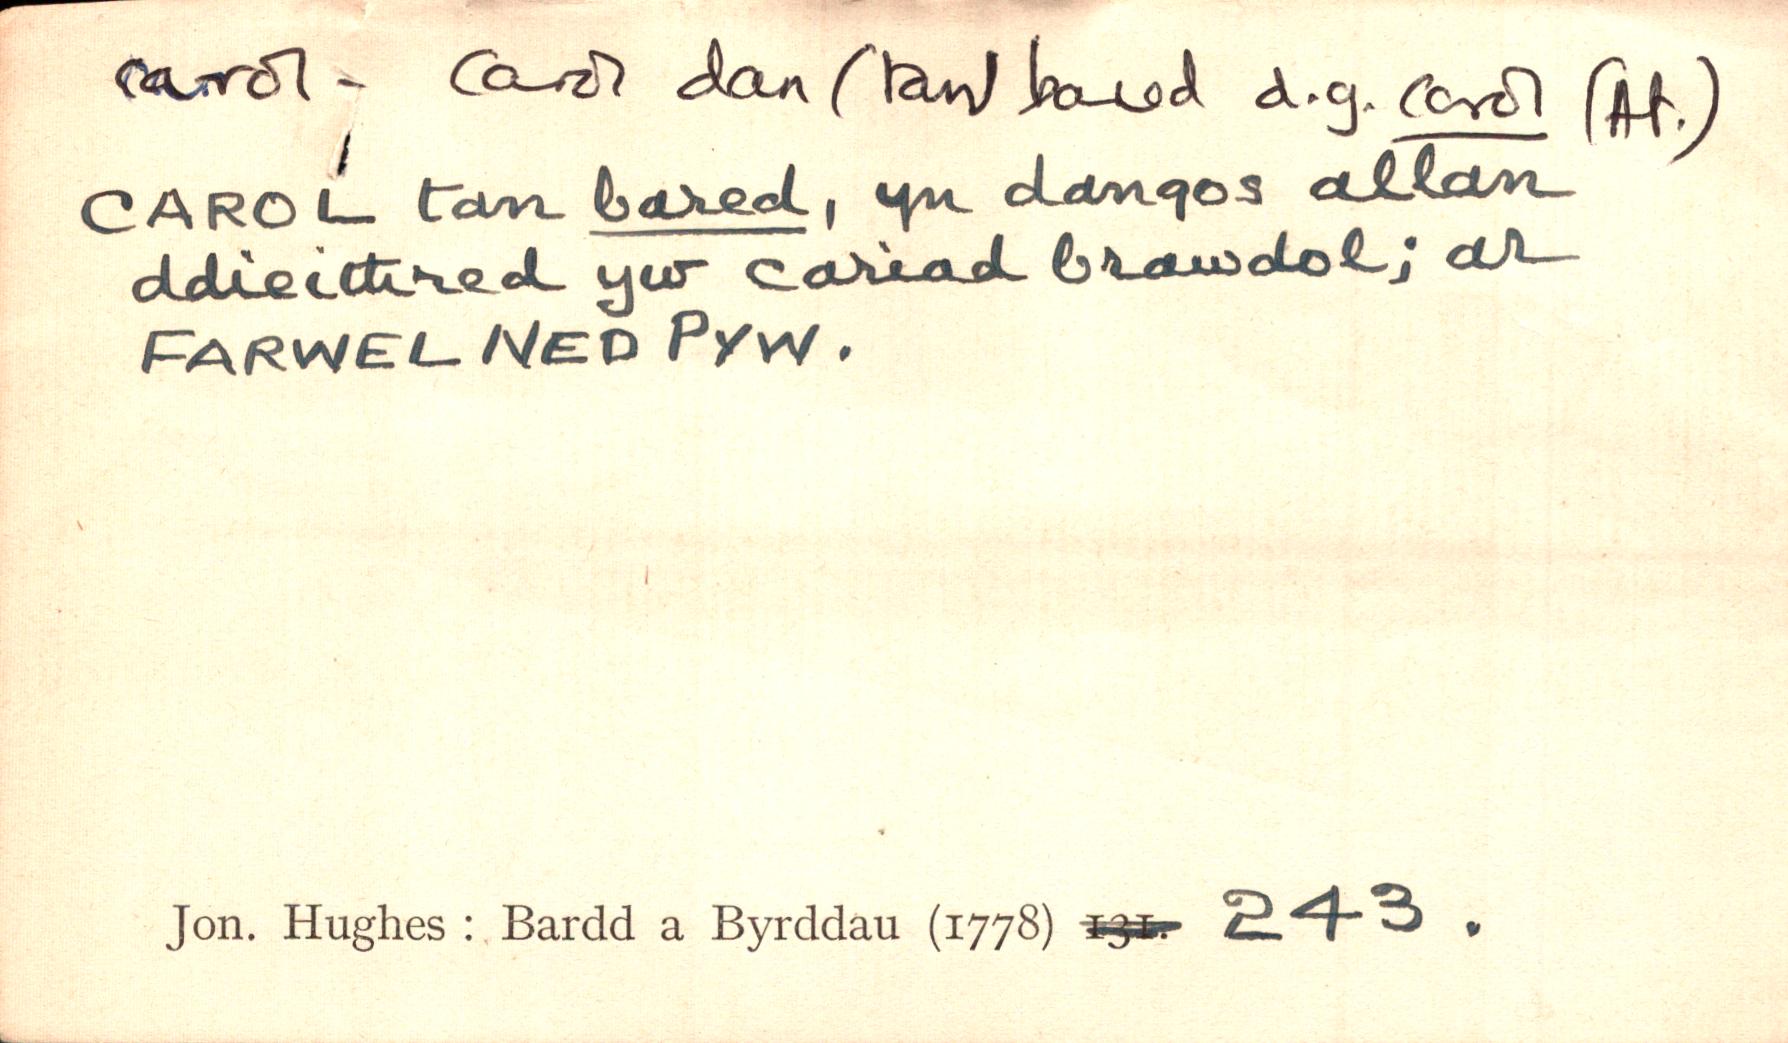 carol - carol dan (tan) bared d.g. carol (At.)
CAROL tan bared, yn dangos allan
ddieithred yw cariad brawdol; ar
FARWEL NED PYW.
Jon. Hughes : Bardd a Byrddau (1778) 131. 243.